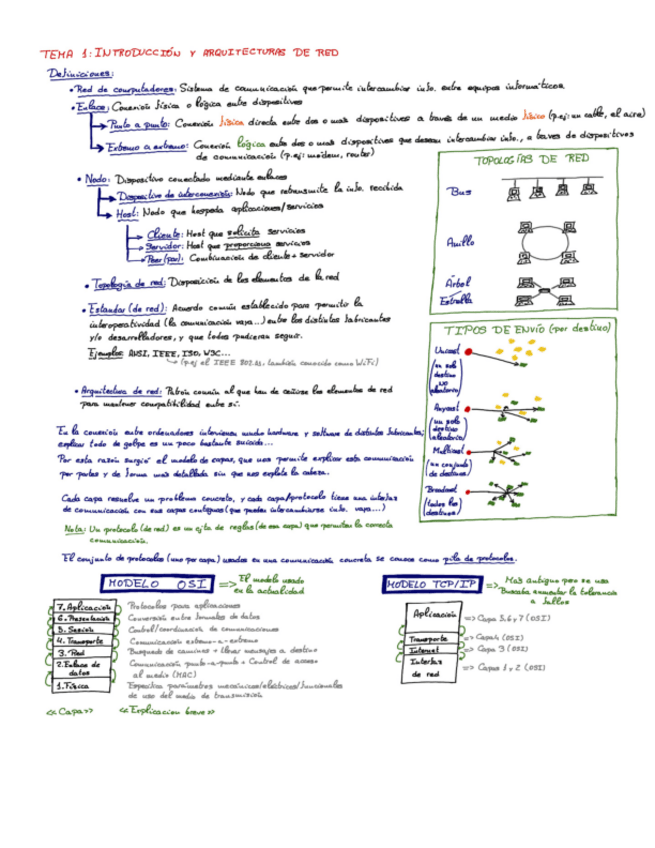 TEMA 1: INTRODUCCIÓN Y ARQUITECTURAS DE RED
Definiciones:
• Red de computadores: Sistema de comunicación que permite intercambiar info. entre equipos informáticos
• Enlace: Conexión física o lógica entre dispositivos
Punto a punto: Conexión física directa entre dos o más dispositivos a través de un medio físico (p.ej: un cable, el aire)
Extremo a extremo: Conexión lógica entre dos o más dispositivos que desean intercambiar info., a través de dispositivos
de comunicación (p.ej: modem, router)
• Nodo: Dispositivo conectado mediante enlaces
Dispositivo de interconexión: Nodo que retransmite la info. recibida
Host: Nodo que hospeda aplicaciones/servicios
Cliente: Host que solicita servicios
Servidor: Host que proporciona servicios
Peer (par): Combinación de cliente + servidor
• Topología de red: Disposición de los elementos de la red
• Estandar (de red): Acuerdo común establecido para permitir la
interoperatividad (la comunicación vaya...) entre los distintos fabricantes
y/o desarrolladores, y que todos pudieran seguir.
Ejemplos: ANSI, IEEE, ISO, W3C...
(p.ej el IEEE 802.11, también conocido como WiFi)
• Arquitectura de red: Patrón común al que han de ceñirse los elementos de red
para mantener compatibilidad entre sí.
TOPOLOGÍAS DE RED
Bus
Anillo
Árbol
Estrella
TIPOS DE ENVÍO (por destino)
Unicast
(un solo
destino
no
aleatorio)
Anycast
(un solo
destino
aleatorio)
Multicast
(un conjunto
de destinos)
Broadcast
(todos los
destinos)
En la conexión entre ordenadores intervienen mucho hardware y software de distintos fabricantes;
explicar todo de golpe es un poco bastante suicida...
Por esta razón surgió el modelo de capas, que nos permite explicar esta comunicación
por partes y de forma más detallada sin que nos explote la cabeza.
Cada capa resuelve un problema concreto, y cada capa/protocolo tiene una interfaz
de comunicación con sus capas contiguas (que pueden intercambiarse info. vaya...)
Nota: Un protocolo (de red) es un cjto de reglas (de esa capa) que permiten la correcta
comunicación.
El conjunto de protocolos (uno por capa) usados en una comunicación concreta se conoce como pila de protocolos.
MODELO OSI
=> El modelo usado
en la actualidad
7. Aplicación Protocolos para aplicaciones
6. Presentación Conversión entre formatos de datos
5. Sesión Control/coordinación de comunicaciones
4. Transporte Comunicación extremo-a-extremo
3. Red Busqueda de caminos + llevar mensajes a destino
2. Enlace de Comunicación punto-a-punto + Control de acceso
datos al medio (MAC)
1. Física Especifica parámetros mecánicos/eléctricos/funcionales
de uso del medio de transmisión
<<Capa>> <<Explicacion breve>>
MODELO TCP/IP
=> Más antiguo pero se usa
Buscaba aumentar la tolerancia
a fallos
Aplicación => Capa 5,6 y 7 (OSI)
Transporte => Capa 4 (OSI)
Internet => Capa 3 (OSI)
Interfaz
de red => Capas 1 y 2 (OSI)